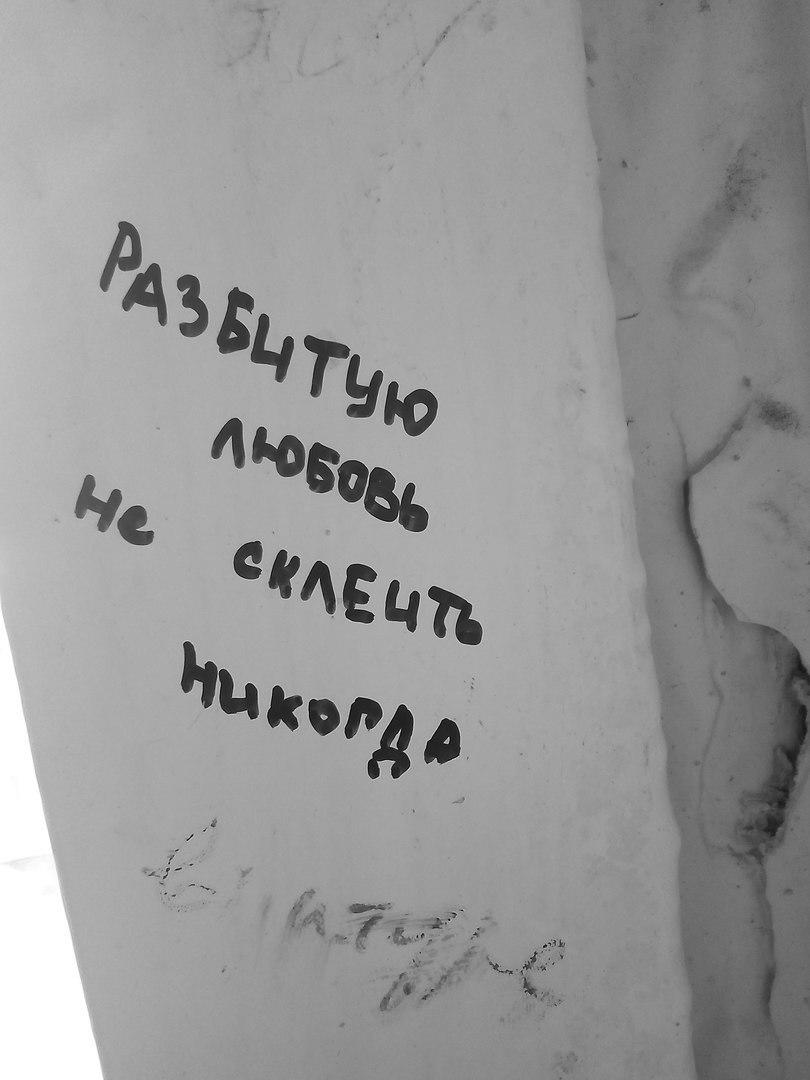 РАЗБИТУЮ
ЛЮБОВЬ
Не СКЛЕИТЬ
НИКОГДА